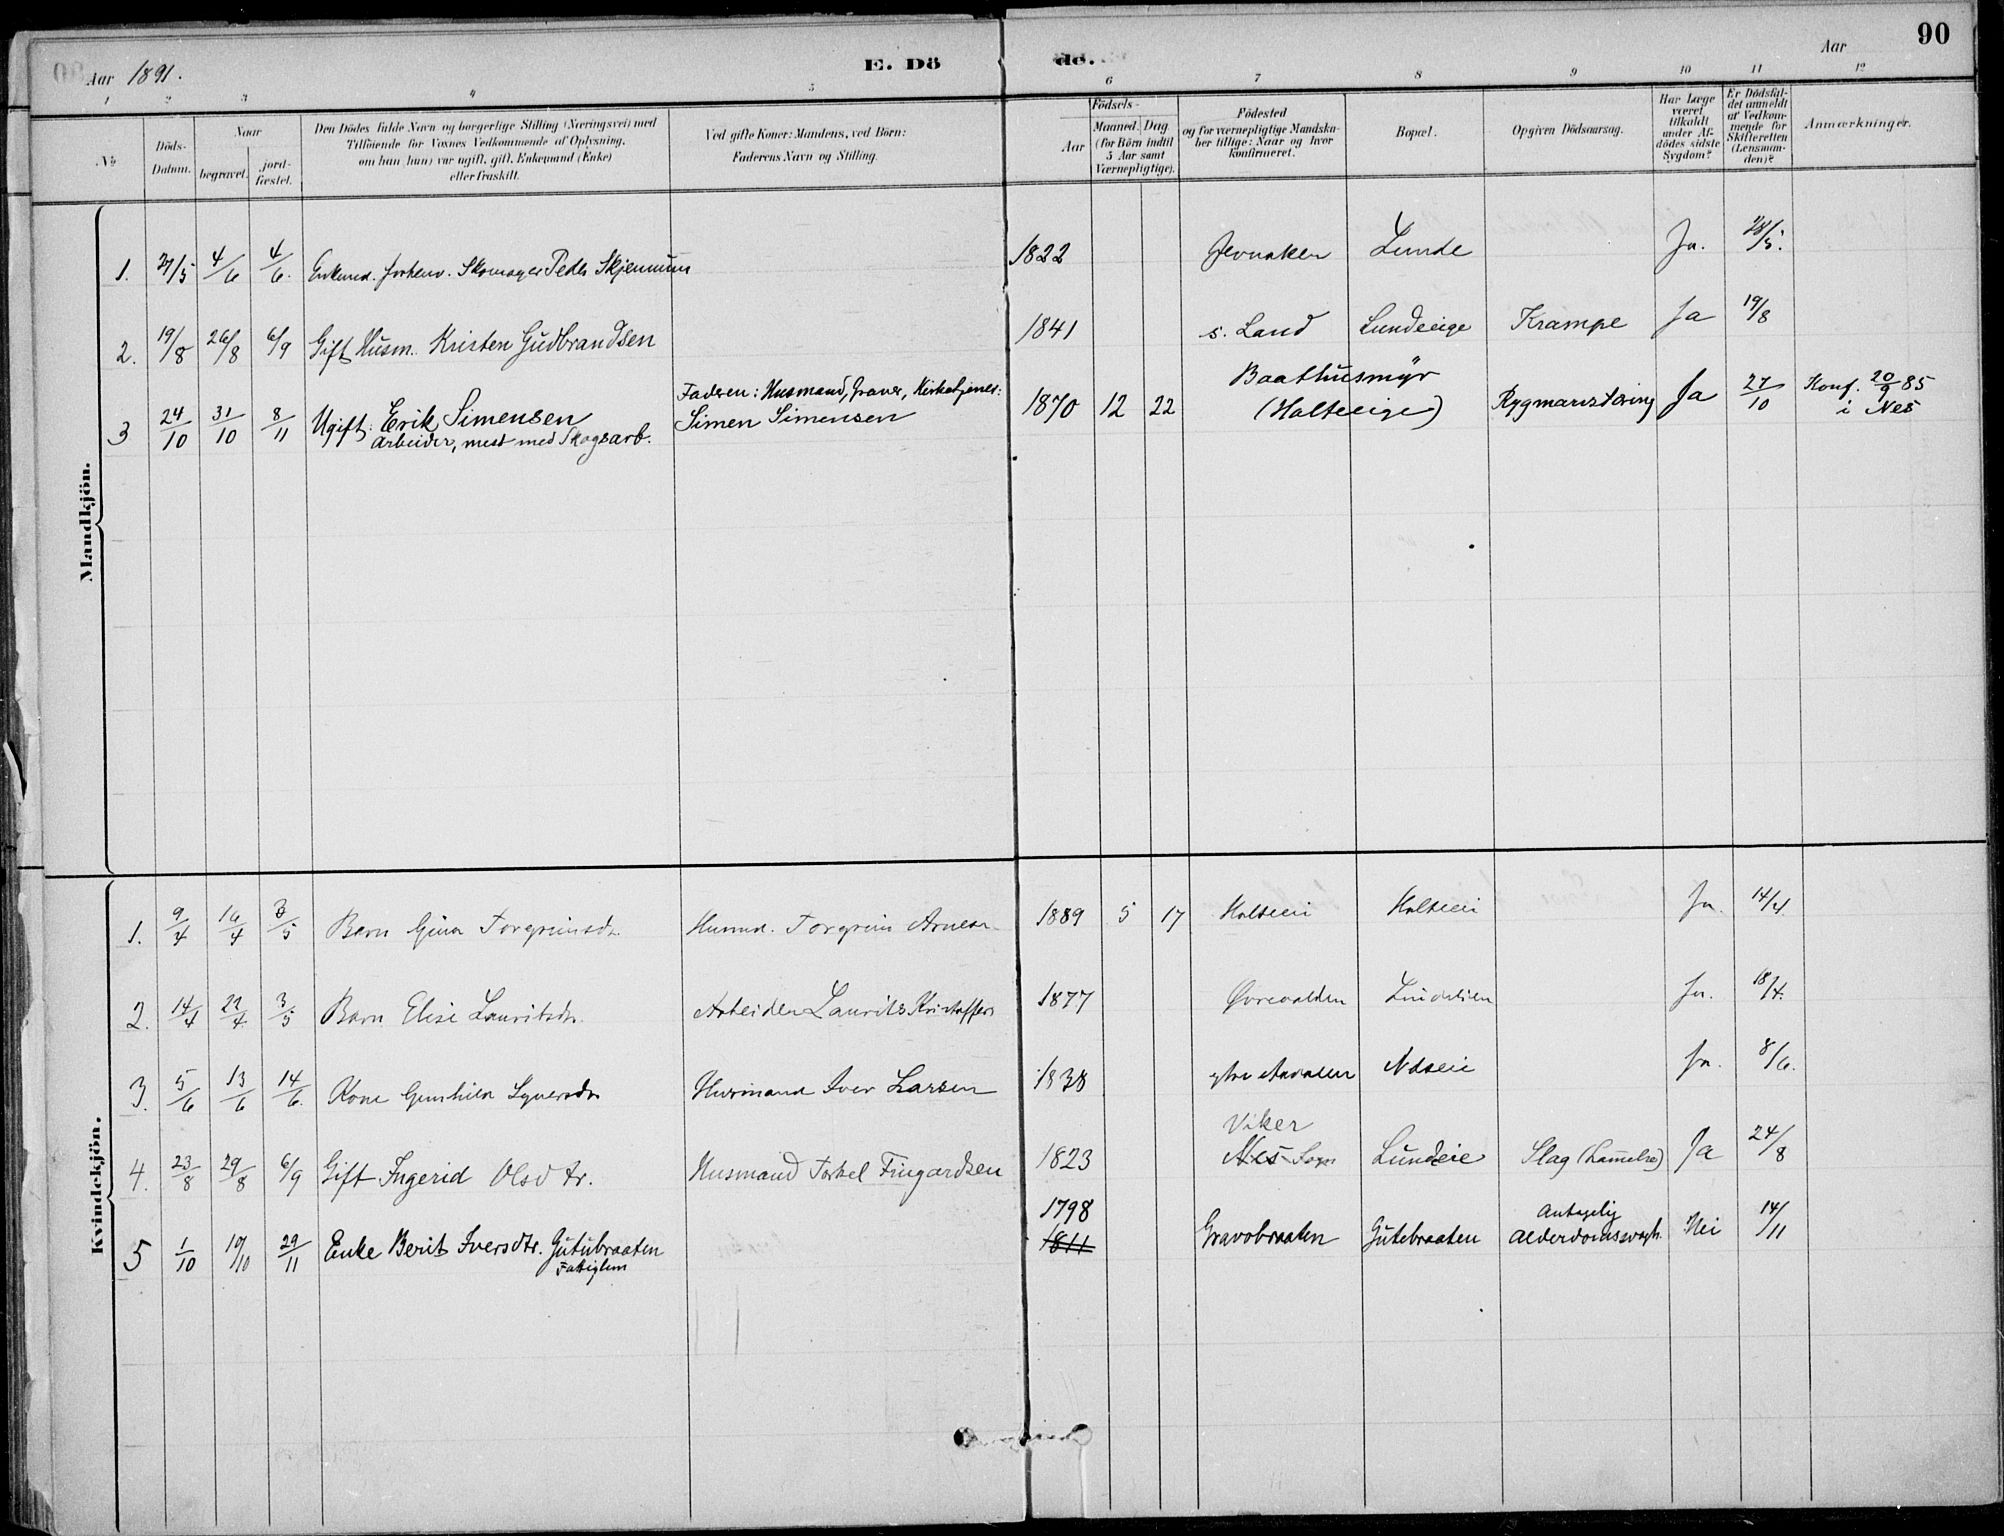 Aar 1891. E. Döde. Aar 90
1 2 3 4 5 6 7 8 9 10 11 12
No
Döds-Datum.
Naar begravet. jordfæstet.
Den Dödes fulde Navn og borgerlige Stilling (Næringsvei) med Tilföiende for Voxnes Vedkommende af Oplysning, om han (hun) var ugift, gift, Enkemand (Enke) eller fraskilt.
Ved gifte Koner: Mandens, ved Börn: Faderens Navn og Stilling.
Födsels-
Aar
Maaned. Dag (for Börn indtil 5 Aar samt Værnepligtige).
Födested og for værnepligtige Mandskaber tillige: Naar og hvor konfirmeret.
Bopæl.
Opgiven Dödsaarsag.
Har Læge været tilkaldt under Afdödes sidste Sygdom?
Er Dödsfaldet anmeldt af Vedkommende for Skifteretten (Lensmanden)?
Anmærkninger.
Mandkjön.
1. 27/5 4/6 4/6. Enkemd. forhenv. Skomager Peder Skjennum 1822 Jevnaker Lunde Ja. 28/5.
2. 19/8 26/8 6/9 Gift Husm. Kristen Gudbrandsen 1841 s. Land Lundeeige Krampe Ja 19/8
Faderen: Husmand, Graver, Kirketjener: Baathusmyr
3 24/10 31/10 8/11 Ugift: Erik Simensen Simen Simensen 1870 12 22 (Holteeige) Rygmarvstæring Ja 27/10 Konf. 20/9 85
Arbeider, mest med Skogsarb. i Nes
Kvindekjön.
1. 9/4 19/4 3/5 Barn Gina Torgrimsdr. Husmd. Torgrim Arnesen 1889 5 17 Holteeii Holteeii Ja. 14/4
2. 14/4 22/4 3/5 Barn Elise Lauritsdr. Arbeider Laurits Kristoffers 1877 Øvrevolden Lindelien Ja. 18/4.
3. 5/6 13/6 14/6. Kone Gunhild Syversdr Husmand Iver Larsen 1838 Næseie Ja. 8/6.
Viker
4. 23/8 29/8 6/9 Gift Ingerid Olsdtr. Husmand Torkel Fingardsen 1823 Nes Sogn Lundeie Slag (Lamelse) Ja 24/8
1798 Antagelig
5 1/10 10/10 29/11 Enke Berit Iversdtr. Gutubraaten 1811 Gravobraaten Gutebraaten Alderdomssvagh. Nei 14/11
Fattiglem